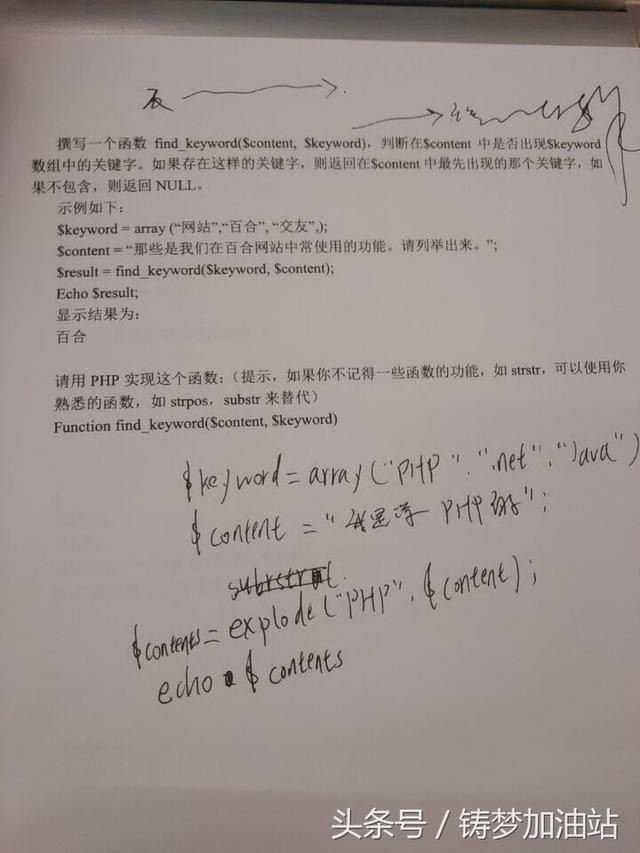 反
撰写一个函数 find_keyword($content, $keyword)，判断在$content 中是否出现$keyword
数组中的关键字。如果存在这样的关键字，则返回在$content 中最先出现的那个关键字，如
果不包含，则返回 NULL。
示例如下：
$keyword = array (“网站”,“百合”, “交友”,);
$content = “那些是我们在百合网站中常使用的功能。请列举出来。”;
$result = find_keyword($keyword, $content);
Echo $result;
显示结果为：
百合
请用 PHP 实现这个函数：（提示，如果你不记得一些函数的功能，如 strstr，可以使用你
熟悉的函数，如 strpos，substr 来替代）
Function find_keyword($content, $keyword)
$keyword = array("PHP".".net"."Java")
$content = "我是 PHP";
$contents = explode("PHP", $content);
echo $contents
头条号 / 铸梦加油站